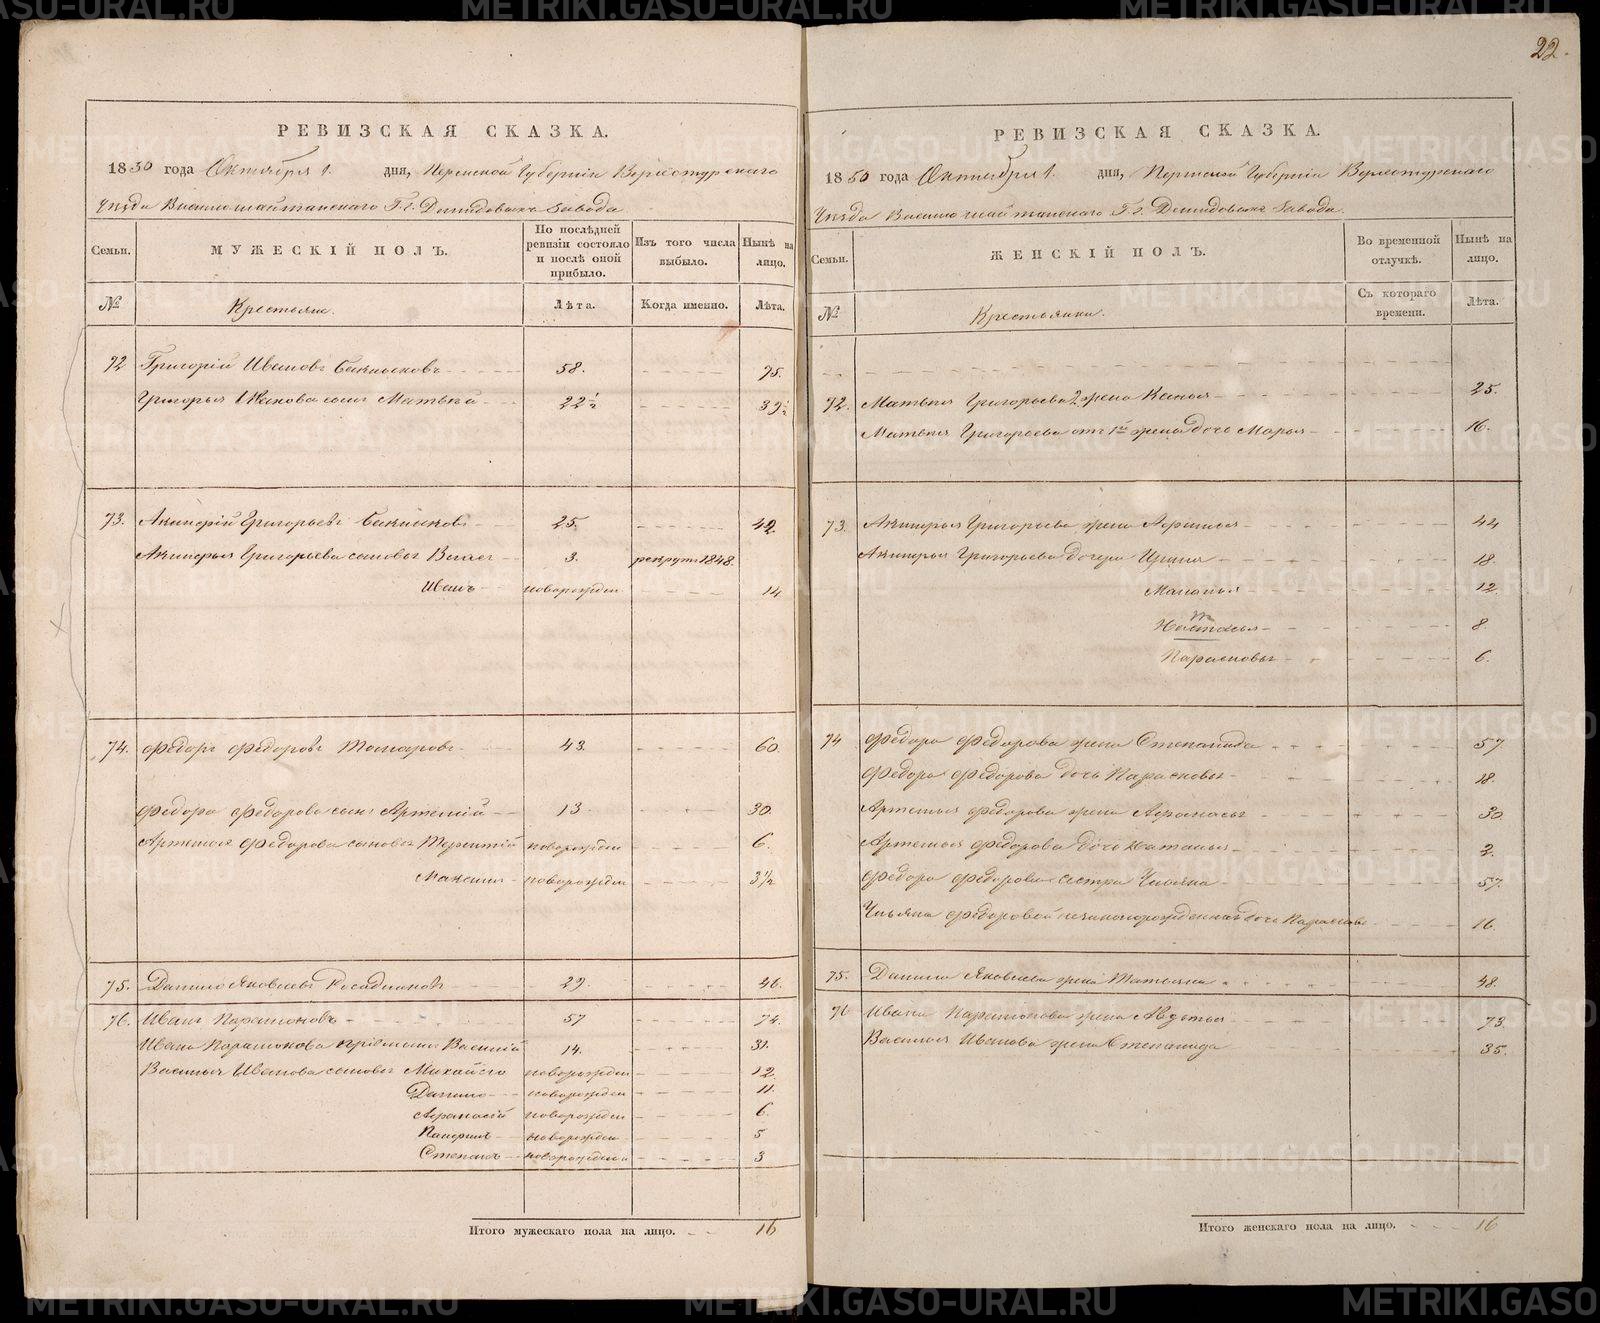 22.
РЕВИЗСКАЯ СКАЗКА.
1850 года Октября 1. дня, Пермской Губернiи Верхотурскаго
Уѣзда Висимошайтанскаго Гг. Демидовыхъ Завода
Семьи. МУЖЕСКІЙ ПОЛЪ. По послѣдней ревизіи состояло и послѣ оной прибыло. Изъ того числа выбыло. Нынѣ на лицо.
№ Крестьяне. Лѣта. Когда именно. Лѣта.
72 Григорій Ивановъ 58. 75.
Григорья Иванова сынъ Матвѣй 22½ 39½
73. Григорьевъ 25. 42.
Григорьева сыновья 3. рекрутъ 1848.
Иванъ новорожден 14
74. Федоръ Федоровъ 43. 60.
Федора Федорова сынъ Артемій 13 30.
Артемья Федорова сыновья Терентій новорожден 6.
Максимъ новорожден 3½
75. Данило Яковлевъ 29 46.
76. Иванъ Парамоновъ 57 74.
Ивана Парамонова пріемышъ Василій 14. 31.
Василья Иванова сыновья Михайло новорожден 12
Данило новорожден 11.
Афанасій новорожден 6
новорожден 5
Степанъ новорожден 3
Итого мужескаго пола на лицо. 16
РЕВИЗСКАЯ СКАЗКА.
1850 года Октября 1. дня, Пермской Губерніи Верхотурскаго
Уѣзда Висимошайтанскаго Гг. Демидовыхъ Завода.
Семьи. ЖЕНСКІЙ ПОЛЪ. Во временной отлучкѣ. Нынѣ на лицо.
№ Крестьянки. Съ котораго времени. Лѣта.
72. Матвѣя Григорьева 2 жена Ксенья 25.
Матвѣя Григорьева отъ 1й жены дочь Марья 16.
73. Григорьева жена 44
Григорьева дочери 18.
Маланья 12
Настасья 8.
Парасковья 6.
74 Федора Федорова жена Степанида 57
Федора Федорова дочь Парасковья 18.
Артемья Федорова жена Афанасья 30
Артемья Федорова дочь Наталья 2.
Федора Федорова сестра Ульяна 57.
Ульяны Федоровой незаконорожденная дочь 16.
75. Данилы Яковлева жена Татьяна 48.
76 Ивана Парамонова жена Авдотья 73.
Василья Иванова жена Степанида 35.
Итого женскаго пола на лицо. 16
METRIKI.GASO-URAL.RU